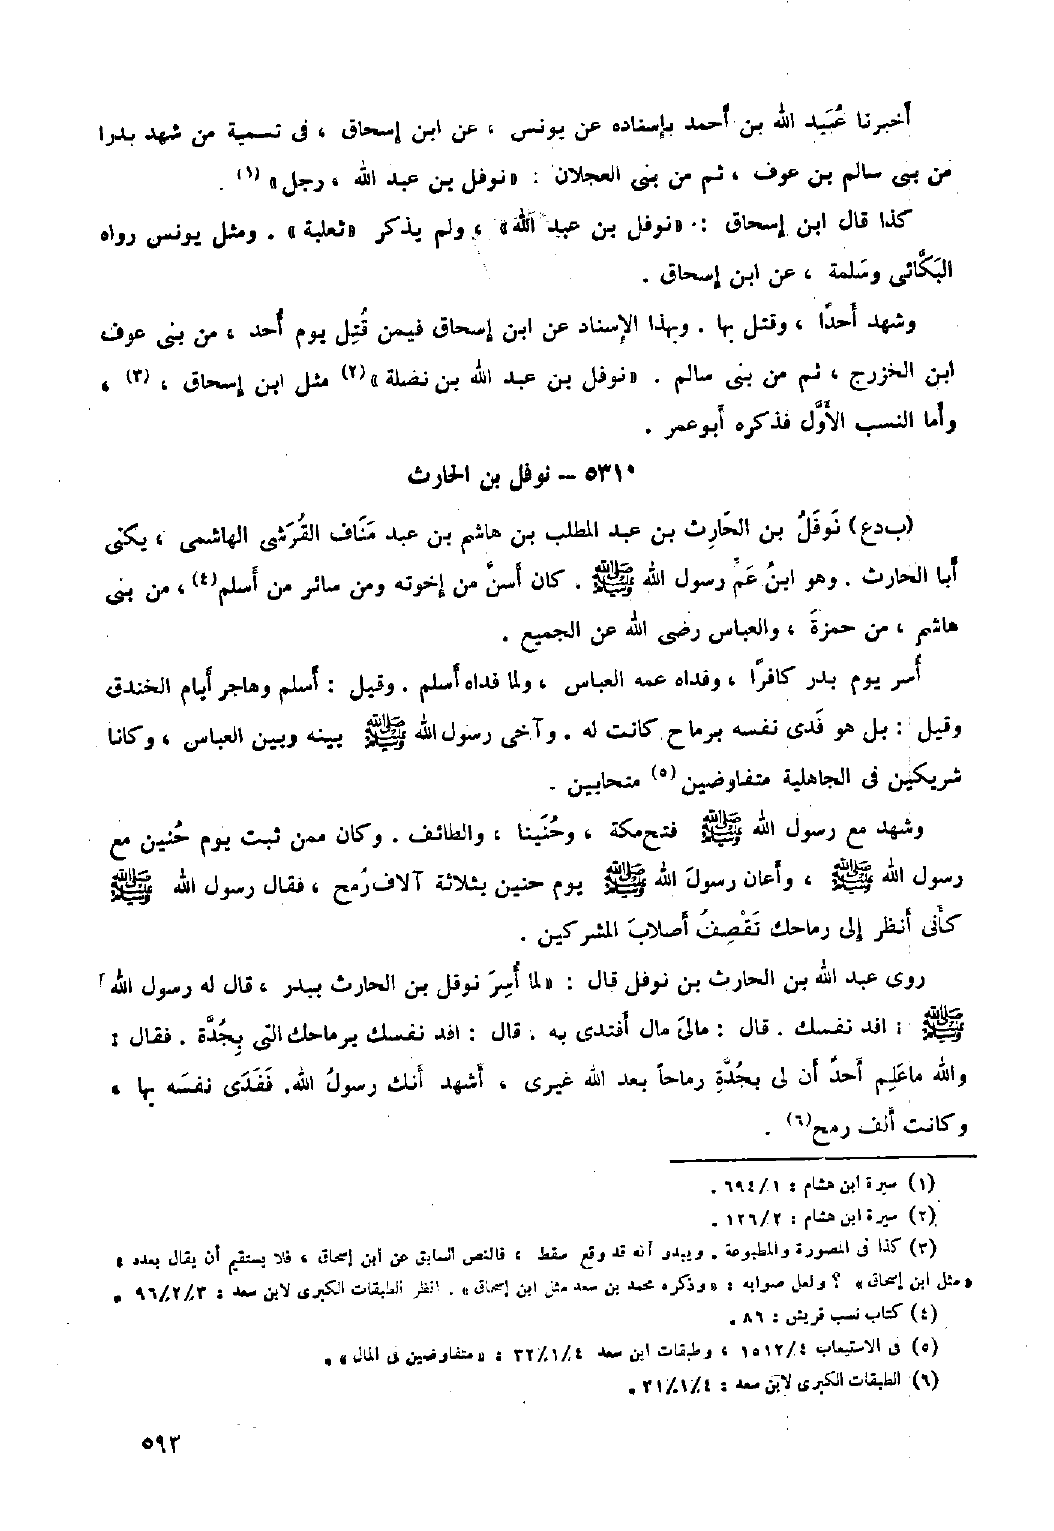 أخبرنا عُبَيد الله بن أحمد بإسناده عن يونس ، عن ابن إسحاق ، فى تسمية من شهد بدرا
من بنى سالم بن عوف ، ثم من بنى العجلان : «نوفل بن عبد الله ، رجل» (١) .
كذا قال ابن إسحاق : «نوفل بن عبد الله» ، ولم يذكر «ثعلبة» . ومثل يونس رواه
البَكَّائى وسَلمة ، عن ابن إسحاق .
وشهد أُحدًا ، وقتل بها . وبهذا الإسناد عن ابن إسحاق فيمن قُتِل يوم أُحد ، من بنى عوف
ابن الخزرج ، ثم من بنى سالم . «نوفل بن عبد الله بن نضلة» (٢) مثل ابن إسحاق ، (٣) ،
وأما النسب الأَوَّل فذكره أبو عمر .
٥٣١٠ – نوفل بن الحارث
(ب د ع) نَوفَلُ بن الحَارِث بن عبد المطلب بن هاشم بن عبد مَنَاف القُرَشى الهاشمى ، يكنى
أبا الحارث . وهو ابنُ عَمِّ رسول الله ﷺ . كان أسنَّ من إخوته ومن سائر من أسلم (٤) ، من بنى
هاشم ، من حمزةَ ، والعباس رضى الله عن الجميع .
أُسر يوم بدر كافرًا ، وفداه عمه العباس ، ولما فداه أسلم . وقيل : أسلم وهاجر أيام الخندق
وقيل : بل هو فَدى نفسه برماح كانت له . وآخى رسول الله ﷺ بينه وبين العباس ، وكانا
شريكين فى الجاهلية متفاوضين (٥) متحابين .
وشهد مع رسول الله ﷺ فتح مكة ، وحُنَينا ، والطائف . وكان ممن ثبت يوم حُنين مع
رسول الله ﷺ ، وأعان رسولَ الله ﷺ يوم حنين بثلاثة آلاف رُمح ، فقال رسول الله ﷺ
كأنى أنظر إلى رماحك تَقْصِفُ أصلابَ المشركين .
روى عبد الله بن الحارث بن نوفل قال : «لما أُسِرَ نوفل بن الحارث ببدر ، قال له رسول الله
ﷺ : افد نفسك . قال : مالىَ مال أفتدى به . قال : افد نفسك برماحك التى بِجُدَّة . فقال :
والله ما عَلِم أحدٌ أن لى بجُدَّةِ رماحاً بعد الله غيرى ، أشهد أنك رسولُ الله. فَفَدَى نفسَه بها ،
وكانت ألف رمح (٦) .
(١) سيرة ابن هشام : ٦٩٤/١ .
(٢) سيرة ابن هشام : ١٢٦/٢ .
(٣) كذا فى المصورة والمطبوعة . ويبدو أنه قد وقع سقط ، فالنص السابق عن ابن إسحاق ، فلا يستقيم أن يقال بعده :
«مثل ابن إسحاق» ؟ ولعل صوابه : «وذكره محمد بن سعد مثل ابن إسحاق» . انظر الطبقات الكبرى لابن سعد : ٩٦/٢/٣ .
(٤) كتاب نسب قريش : ٨٦ .
(٥) فى الاستيعاب ١٥١٢/٤ ، وطبقات ابن سعد ٣٢/١/٤ : «متفاوضين فى المال» .
(٦) الطبقات الكبرى لابن سعد : ٣١/١/٤ .
٥٩٣